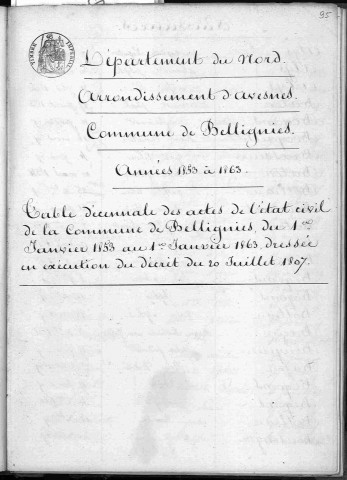 95
TIMBRE IMPERIAL
Département du Nord.
Arrondissement d'avesnes.
Commune de Bellignies.
Années 1853 à 1863.
Table décennale des actes de l'état civil
de la Commune de Bellignies, du 1er
Janvier 1853 au 1er Janvier 1863, dressée
en exécution du décret du 20 Juillet 1807.